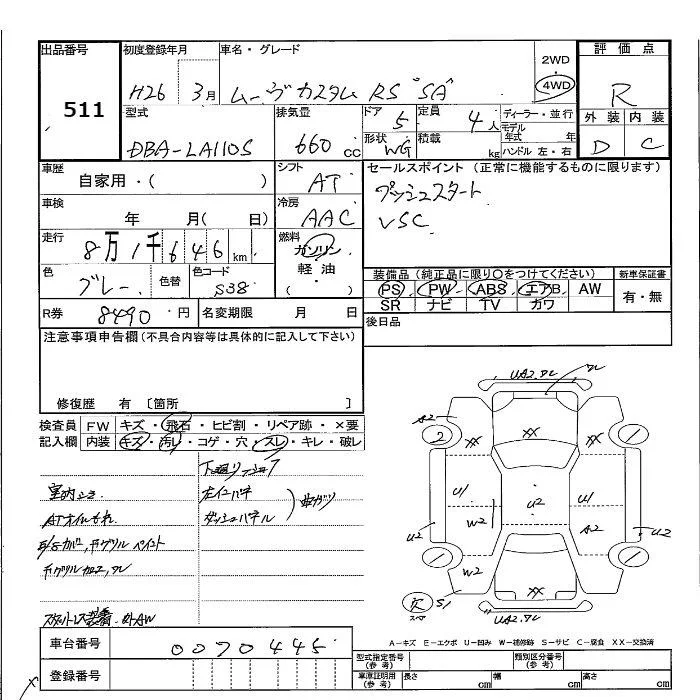 出品番号
511
初度登録年月
H26 3月
車名・グレード
ムーヴカスタム RS "SA"
2WD
4WD
評価点
R
外装 内装
D C
型式
DBA-LA110S
排気量
660 cc
ドア
5
形状
WG
定員
4人
積載
kg
ディーラー・並行
モデル年式 年
ハンドル 左・右
車歴
自家用・( )
シフト
AT
セールスポイント (正常に機能するものに限ります)
プッシュスタート
VSC
車検
年 月( 日)
冷房
AAC
走行
8万1千646km
燃料
ガソリン
軽油
( ・ )
色
グレー
色替
色コード
S38
装備品(純正品に限り〇をつけてください)
PS PW ABS エアB AW
SR ナビ TV カワ
新車保証書
有・無
R券
8490円
名変期限 月 日
後日品
注意事項申告欄(不具合内容等は具体的に記入して下さい)
修復歴 有 〔箇所 〕
検査員記入欄
FW キズ・飛石・ヒビ割・リペア跡・×要
内装 キズ・汚レ・コゲ・穴・スレ・キレ・破レ
ATオイルもれ
ダッシュパネル
UA2.ワレ
ワレ
A2
2
XX
XX
XX
U1
U2
U1
W2
A2
U2
U2
W2
XX
欠
スペア
S1
UA2.ワレ
A-キズ E-エクボ U-凹み W-補修跡 S-サビ C-腐食 XX-交換済
車台番号
0070445
登録番号
型式指定番号(参考)
類別区分番号(参考)
車庫証明用(参考)
長さ cm
幅 cm
高さ cm